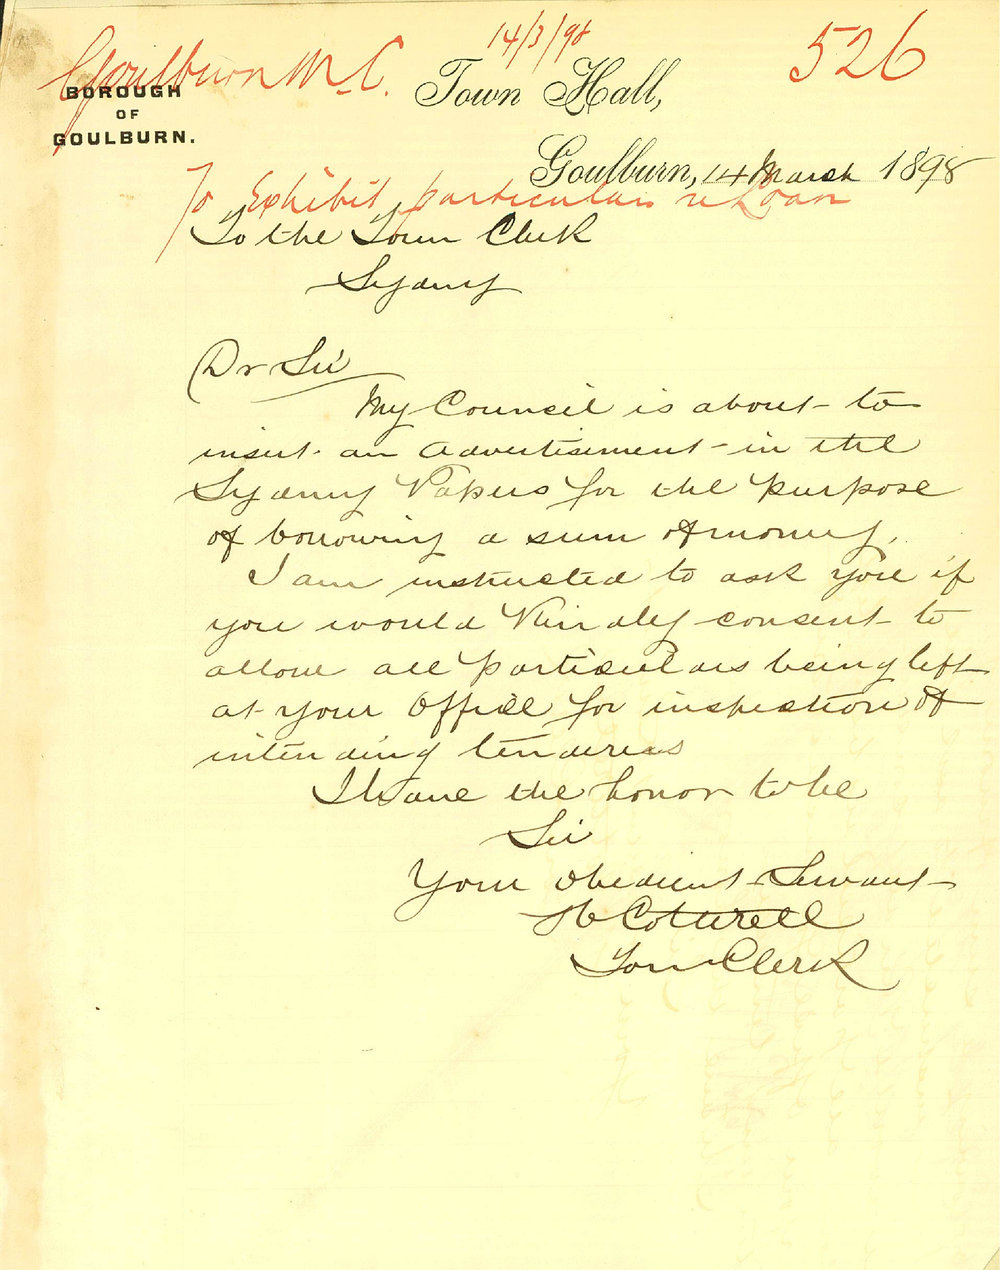 Goulburn M.C.
14/3/98
526
BOROUGH
OF
GOULBURN.
Town Hall,
Goulburn, 14 March 1898
To Exhibit particulars re Loan
To the Town Clerk
Sydney
Dr Sir
My Council is about to
insert an advertisement in the
Sydney Papers for the purpose
of borrowing a sum of money.
I am instructed to ask you if
you would kindly consent to
allow all particulars being left
at your office for inspection of
intending tenderers
I have the honor to be
Sir
Your obedient Servant
Cotterell
Town Clerk